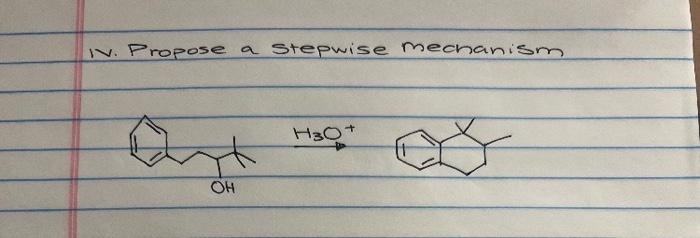 IV. Propose a stepwise mechanism
H₃O⁺
OH